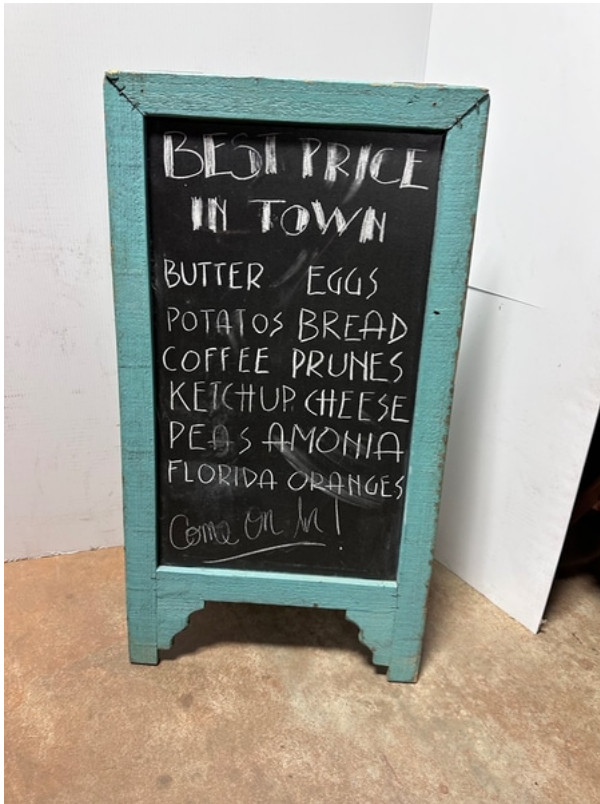 BEST PRICE
IN TOWN
BUTTER EGGS
POTATOS BREAD
COFFEE PRUNES
KETCHUP CHEESE
PEAS AMONIA
FLORIDA ORANGES
Come on In!